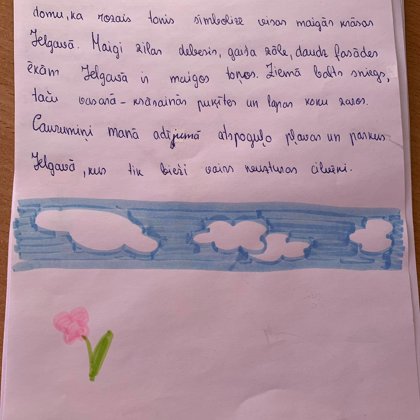 domu, ka rozais tonis simbolizē visas maigās krāsas
Jelgavā. Maigi zilas debesis, gaiša zāle, daudz fasādes
ēkām Jelgavā ir maigos toņos. Ziemā balts sniegs,
taču vasarā - krāsainās puķītes un lapas koku zaros.
Caurumiņi manā adījumā atspoguļo pļavas un parkus
Jelgavā, kur tik bieži vairs neuzturas cilvēki.